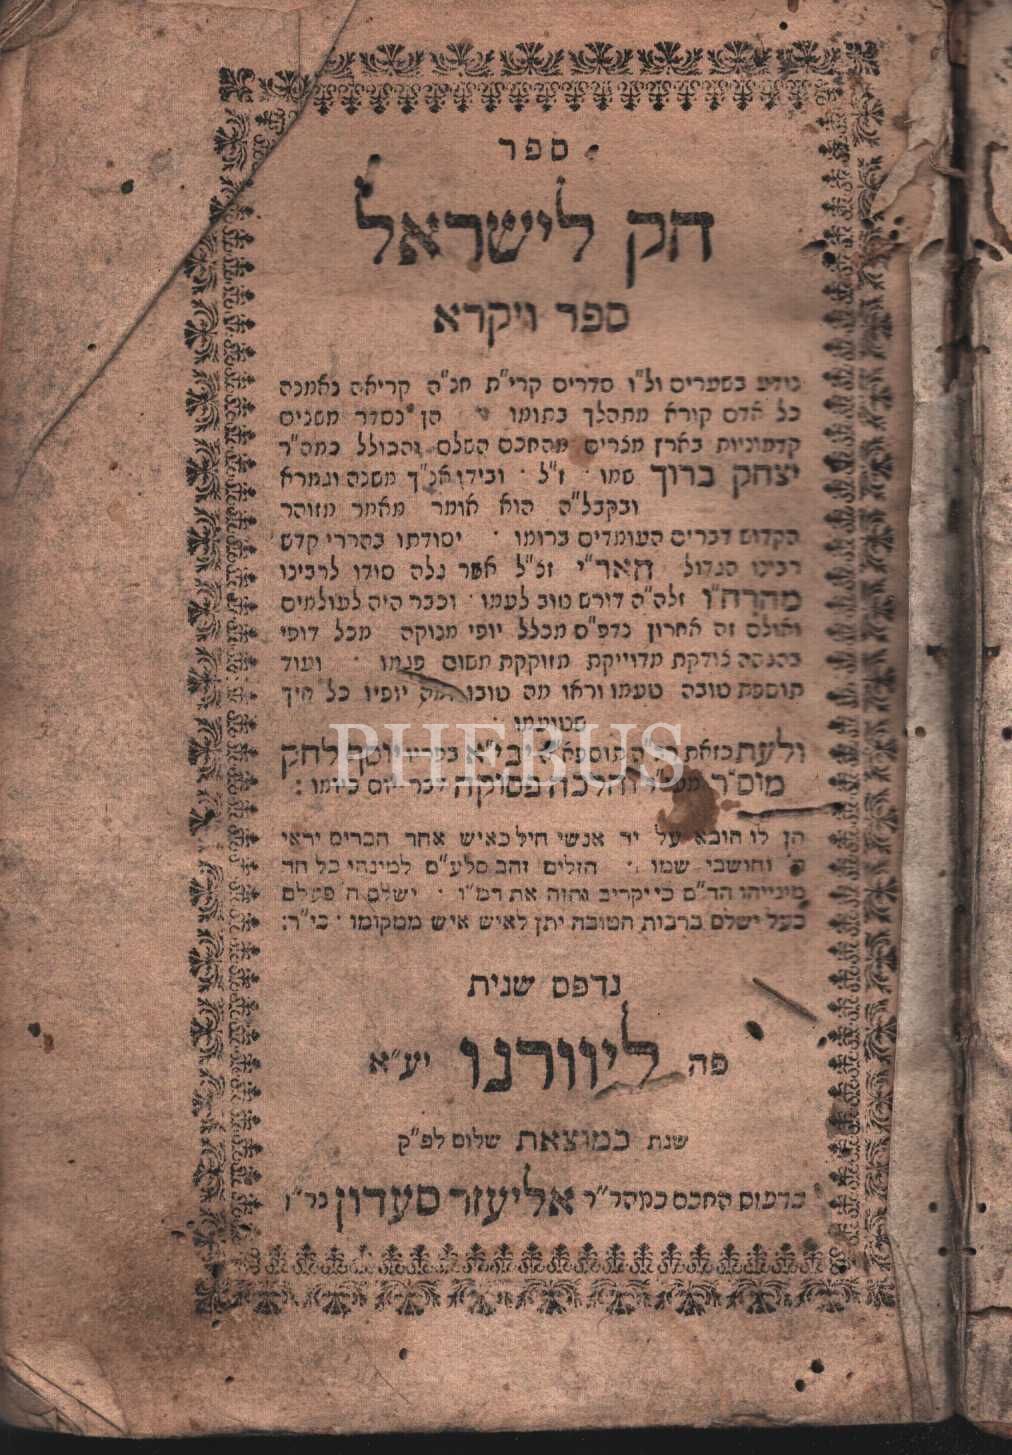 ספר
חק לישראל
ספר ויקרא
נודע בשערים ול"ו סדרים קרי"ת חנ"ה קריאה נאמנה
כל אדם קורא מתהלך בתומו הן נסדר משנים
קדמוניות בארץ מצרים מהחכם השלם והכולל כמה"ר
יצחק ברוך שמו · ז"ל · ובידו אנ"ך משנה וגמרא
ובקבל"ה הוא אומר מאמר מזוהר
הקדוש דברים העומדים ברומו · יסודתו בהררי קדש
רבינו הגדול האר"י זכ"ל אשר גלה סודו לרבינו
מהרח"ו זלה"ה דורש טוב לעמו · וכבר היה לעולמים
ואולם זה אחרון נדפ"ס מכלל יופי מנוקה מכל דופי
בהגהה בודקת מדוייקת מזוקקת משום פגמו · ועוד
תוספת טובה טעמו וראו מה טובו ומה יופיו כל חיך
ולעת כזאת התוספא יבי"א בפריו יוסף לחק
מוס"ר והלכה פסוקה דבר יום ביומו :
הן לו חובא על יד אנשי חיל כאיש אחד חברים יראי
ה' וחושבי שמו · הזלים זהב סלע"ם למינהי כל חד
מינייהו הד"ם כי יקריב והזה את דמ"ו · ישלם ה' פעלם
כעל ישלם ברבות הטובה יתן לאיש איש ממקומו · כי"ר:
נדפס שנית
פה ליוורנו יע"א
שנת כמוצאת שלום לפ"ק
בדפוס החכם כמהר"ר אליעזר סעדון נר"ו
PHEBUS